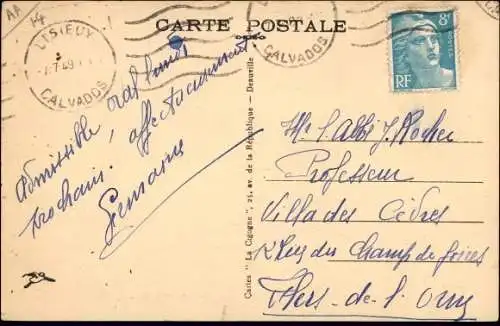 AA
CARTE POSTALE
LISIEUX
CALVADOS
CALVADOS
8F
RF
Admissible oral lundi
prochain, affectueusement
Germaine
Cartes "La Cigogne", 21, av. de la République - Deauville
Mr l'Abbé J. Rocher
Professeur
Villa des Cèdres
Rue du Champ de foires
Flers-de-l'Orne